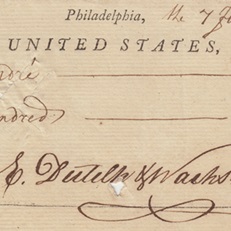 Philadelphia, the 7
UNITED STATES,
ndré
undred
E. Dutilh & Wachs